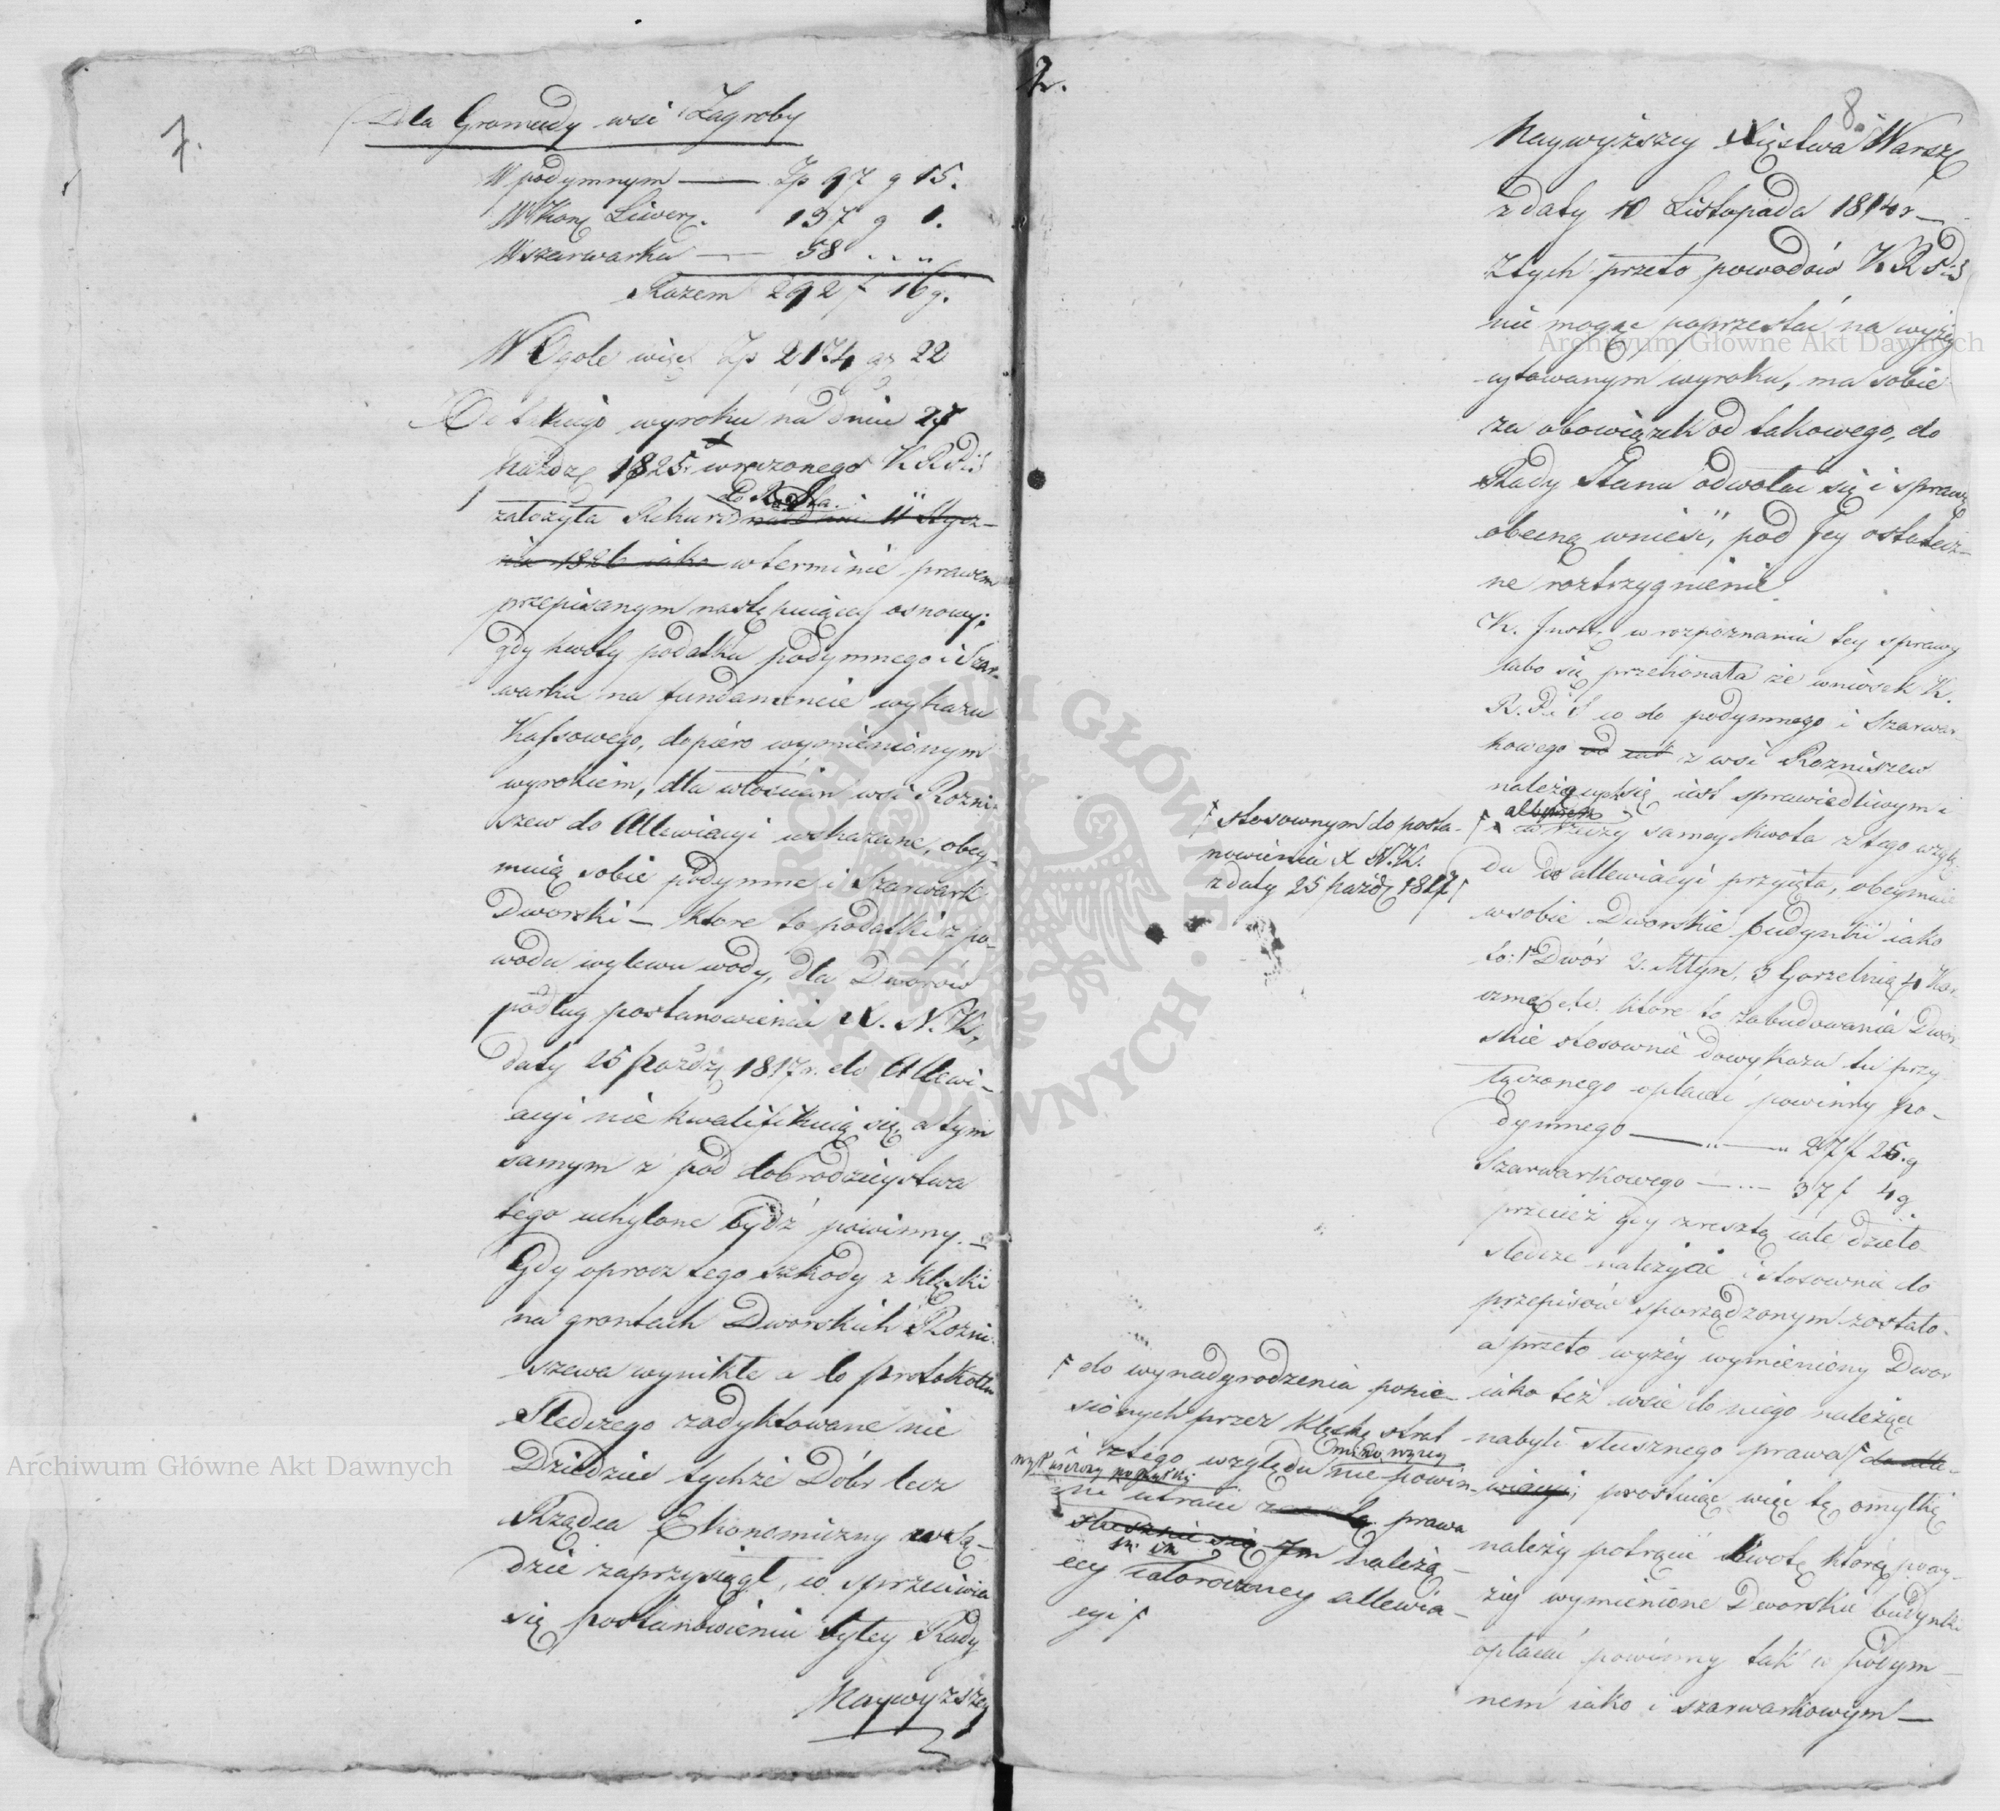 7.
Dla Gromady wsi Zagroby
W podymnym — Zp 97 g 15.
W Kon. Liwer. 137 g 1.
W szarwarku — 58 „ „
Razem 292 f 16 g.
W Ogole więc Zp 2174 gr 22
Od takiego wyroku na dniu 27
Paźdz 1825 r wręczonego K R P i S
do R. Sta.
założyła Rekurs na dniu 11 Stycz-
nia 1826 iako w terminie prawem
przepisanym następuiącey osnowy:
gdy kwoty podatku podymnego i Szar-
warku na fundamencie wykazu
Kassowego, dopiero wymienionym
wyrokiem, dla włościan wsi Rozni-
szew do Allewiacyi wskazane, obey-
muią sobie podymne i Szarwark
Dworski — które to podatki z po-
wodu wylewu wody, dla Dworów
podług postanowienia X. N. K.
daty 25 Paźdz 1817 r. do Allewi-
acyi nie kwalifikuią się, a tym
samym z pod dobrodzieystwa
tego uchylone bydź powinny. —
Gdy oprocz tego szkody z klęski
na grontach Dworskich Rozni-
szewa wynikłe a do protokołu
Sledczego zadyktowane nie
Dziedzic tychże Dóbr lecz
Rządca Ekonomiczny w Są-
dzie zaprzysiągł, co sprzeciwia
się postanowieniu byłey Rady
Naywyższey
2.
8.
Naywyższey Xięstwa Warsz
z daty 10 Listopada 1814 r —
Z tych przeto powodów K R P i S
nie mogąc poprzestać na wyżey
cytowanym wyroku, ma sobie
za obowiązek od takowego, do
Rady Stanu odwołać się i sprawę
obecną wnieść, pod Jey ostatecz-
ne roztrzygnienie.
K. Instr. w rozpoznaniu tey sprawy
lubo się przekonała że wniosek K.
R. P. i S co do podymnego i Szarwar-
kowego z wsi Rozniszew
należącego się iest sprawiedliwym i
F stosownym do posta-
nowienia X N. K.
z daty 25 Paźdz 1817 F
w rzeczy samey kwota z tego wzglę-
du do allewiacyi przyięta, obeymuie
w sobie Dworskie budynki iako
to: 1° Dwór 2. Młyn, 3 Gorzelnią 4 Kar-
czmę etc. które to zabudowania Dwor-
skie stosownie do wykazu tu przy
łączonego opłacać powinny po-
dymnego — „ — „ 27 f 25 g
Szarwarkowego — „ — 37 f 4 g.
przecież gdy zresztą całe dzieło
sledcze należycie i stosownie do
przepisów sporządzonym zostało.
a przeto wyżey wymieniony Dwor
iako też wsie do niego należące
nabyli słusznego prawa F do alle-
wiacyi; prostuiąc więc tę omyłkę
należy potrącić kwotę którą powy-
żey wymienione Dworskie budynki
opłacać powinny tak w podym-
nem iako i szarwarkowym —
F do wynadgrodzenia ponie-
sionych przez klęskę strat
i z tego względu nie powin-
ni utracić prawa
słusznie się Im należą-
cey całoroczney allewia-
cyi F
Archiwum Główne Akt Dawnych
Archiwum Główne Akt Dawnych
ARCHIWUM GŁÓWNE AKT DAWNYCH